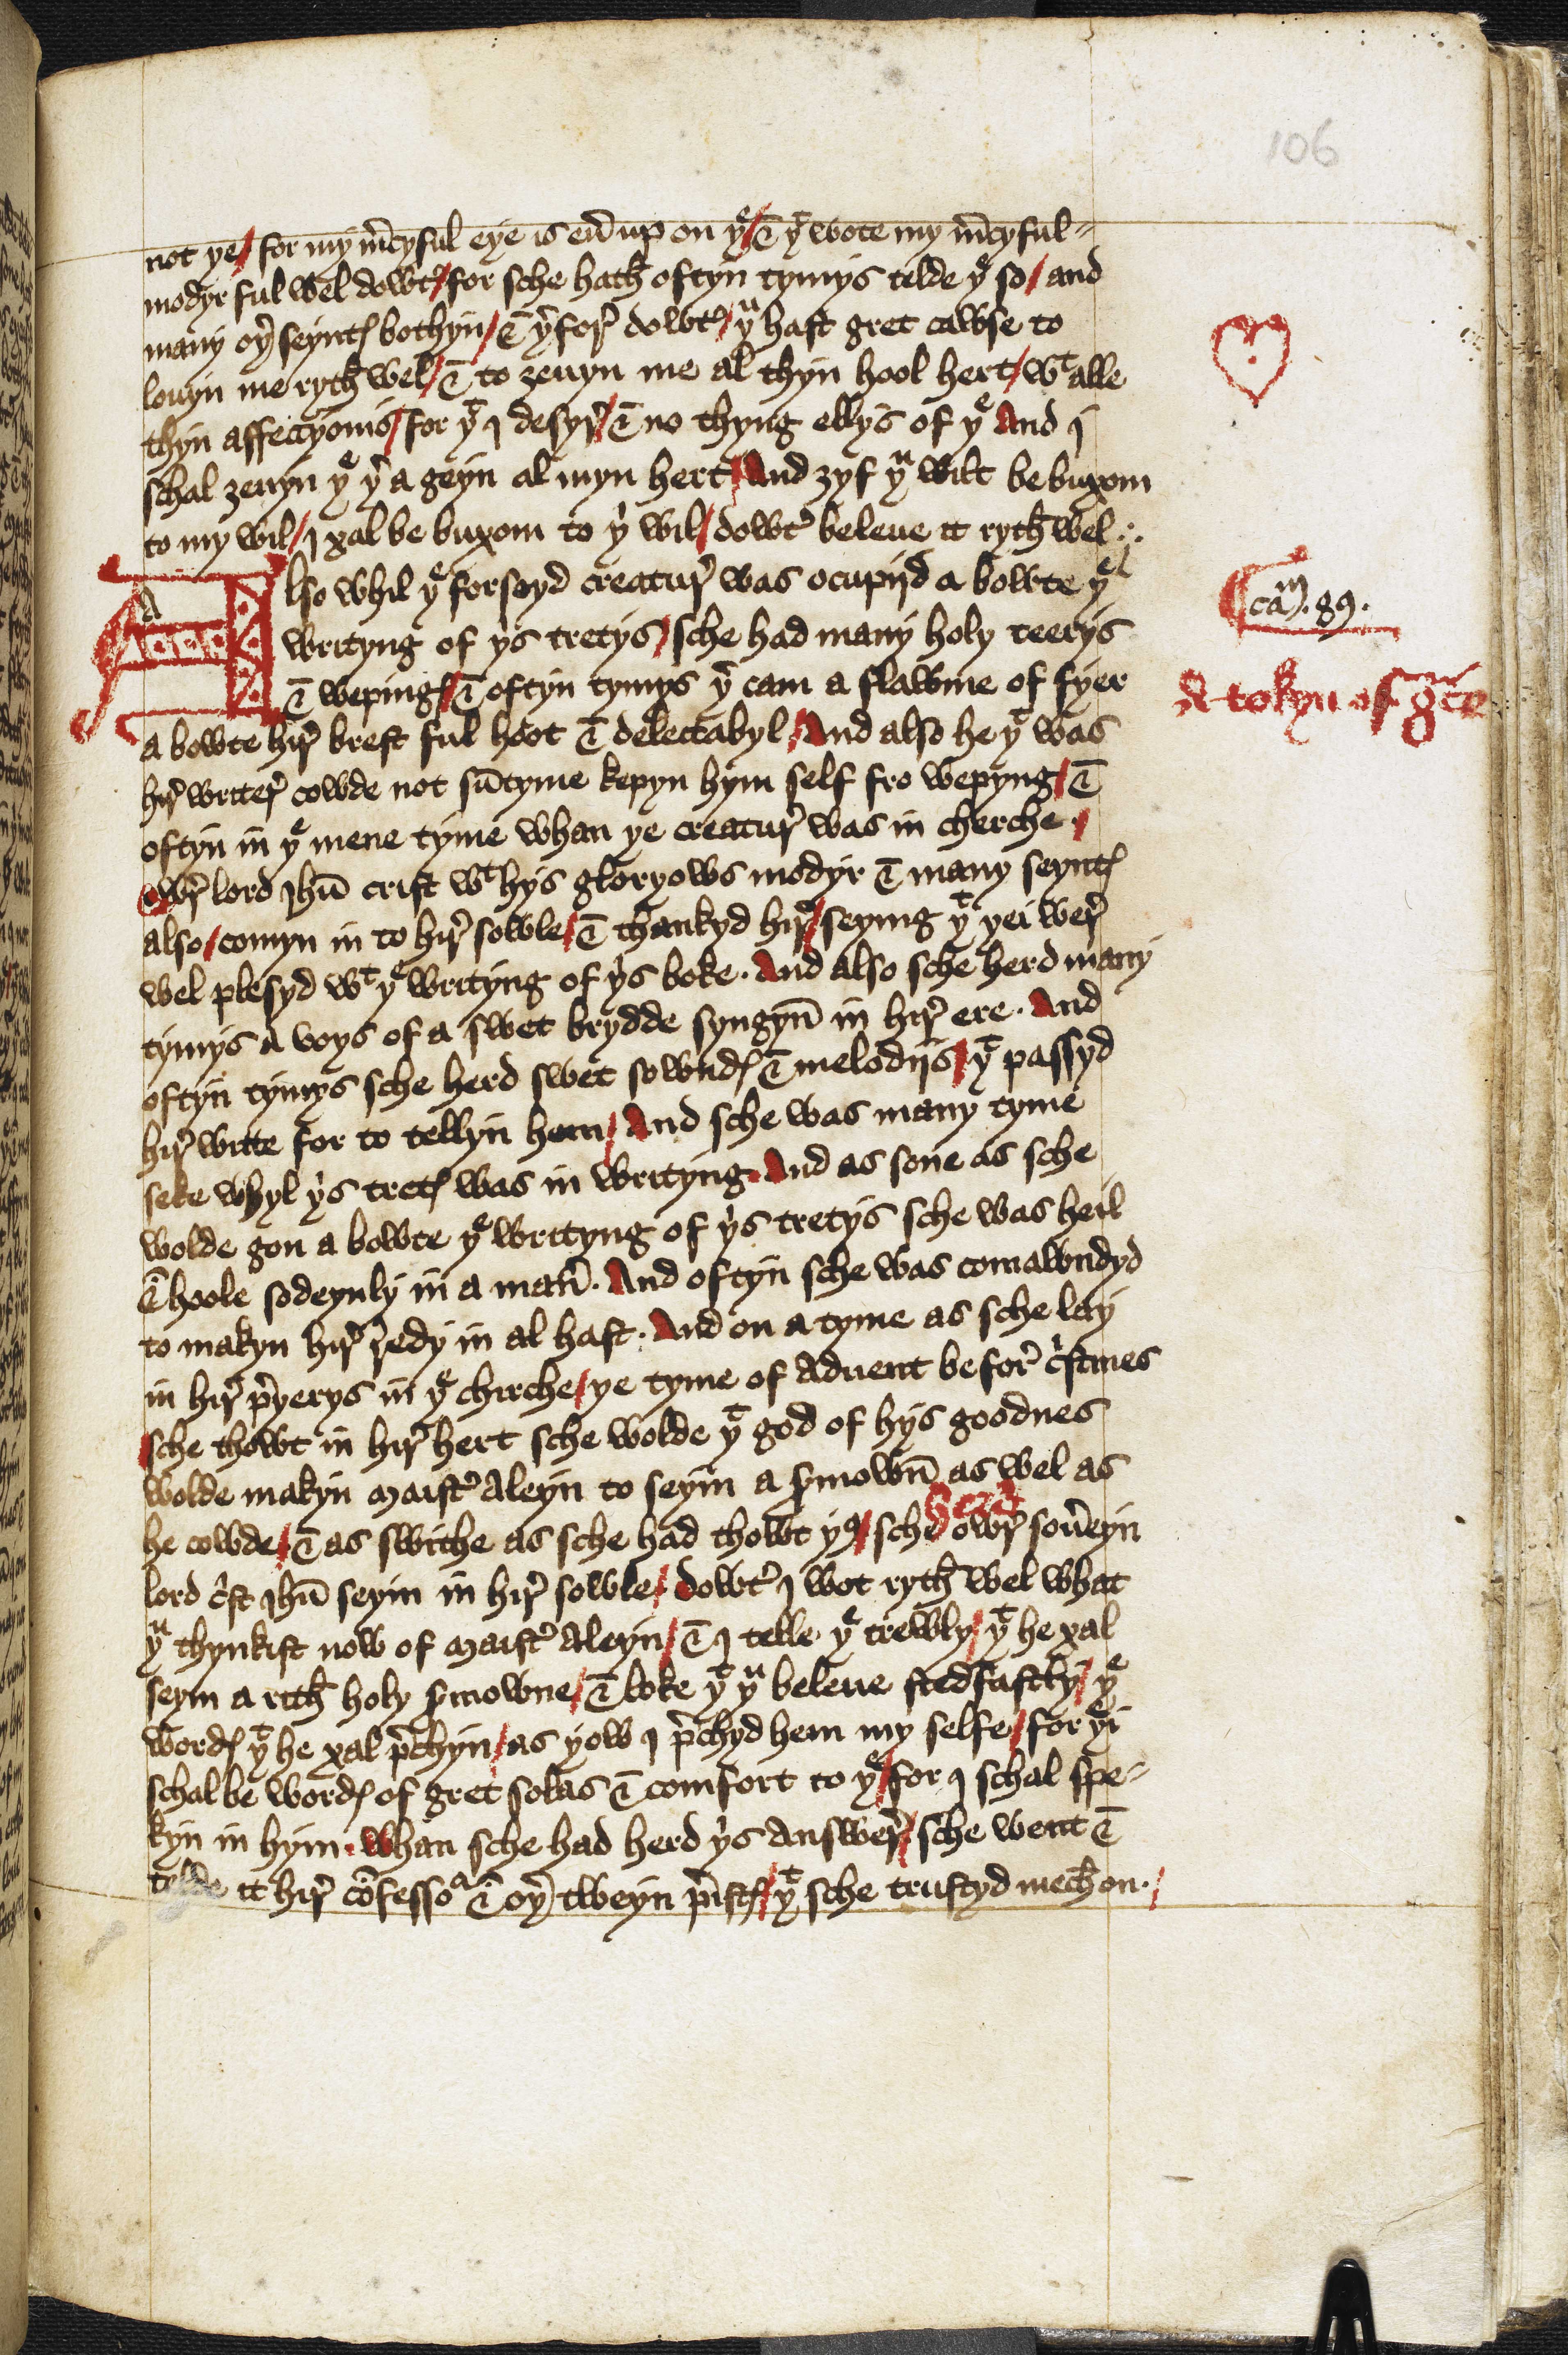 106
not ye / for my m̄cyful eye is eu̅ up on yᵉ / & yᵗ wote my m̄cyful
modyr ful wel dowt' / for sche hath oftyn tymys telde yᵉ so / and
many oy' seynt' bothyn / & y'for' dowt' / yᵘ hast gret cawse to
louyn me ryth wel / & to zeuyn me al thyn hool hert / wᵗ alle
thyn affeccyonis / for yᵗ I desyr' / & no thyng ellys of yᵉ And I
schal zeuyn yᵉ y' a geyn al myn hert / And zyf yᵘ wilt be buxom
to my wil / I xal be buxom to y' wil / dowt' beleue it ryth wel ∴
A lso whil yᵉ forseyd creatur' was ocupijd a bowte yᵉ
cam̄. 89.
writyng of y's tretys / sche had many holy teerys
& weping' / & oftyn tymys y' cam a flawme of fyer
A tokyn of g̅ce
a bowte hir' brest ful hoot & delectabyl / And also he yᵗ was
hir' writer' cowde not su̅tyme kepyn hym self fro wepyng / &
oftyn in yᵉ mene tyme whan ye creatur' was in cherche /
owr' lord Ihu̅ crist wᵗ hys gloryows modyr & many seynt'
also / comyn in to hir' sowle / & thankyd hir' / seying yᵗ yei wer'
wel plesyd wᵗ yᵉ writyng of y's boke. And also sche herd many
tymys a voys of a swet brydde syngyn̅ in hir' ere. And
oftyn tymys sche herd swet sownd' & melodijs / yᵗ passyd
hir' witte for to tellyn hem / And sche was many tyme
seke whyl y's tret' was in writyng. And as sone as sche
wolde gon a bowte yᵉ writyng of y's tretys sche was heil
& hoole sodeynly in a man̄. And oftyn sche was comawndyd
to makyn hir' redy in al hast. And on a tyme as sche lay
in hir' p'yerys in yᵉ chirche / ye tyme of Aduent befor' c'stmes
sche thowt in hir' hert sche wolde yᵗ god of hys goodnes
wolde makyn maist' Aleyn to seyin a s'mown̅ as wel as
he cowde / & as swithe as sche had thowt y⁹ / sche herd owr' sou'eyn
lord c'st Ihu̅ seyin in hir' sowle / dowt' I wot ryth wel what
yᵘ thynkist now of maist' Aleyn / & I telle yᵉ trewly / yᵗ he xal
seyin a rith holy s'mowne / & loke yᵗ yᵘ beleue stedfastly / yᵉ
word' yᵗ he xal p'chyn / as yow I p'chyd hem my selfe / for yᵉi
schal be word' of gret solas & comfort to yᵉ / for I schal spe-
kyn in hym. whan sche had herd y's answer' / sche went &
telde it hir' co̅fessoᵃ & oy' tweyn p'ist' / yᵗ sche trustyd mech on. /